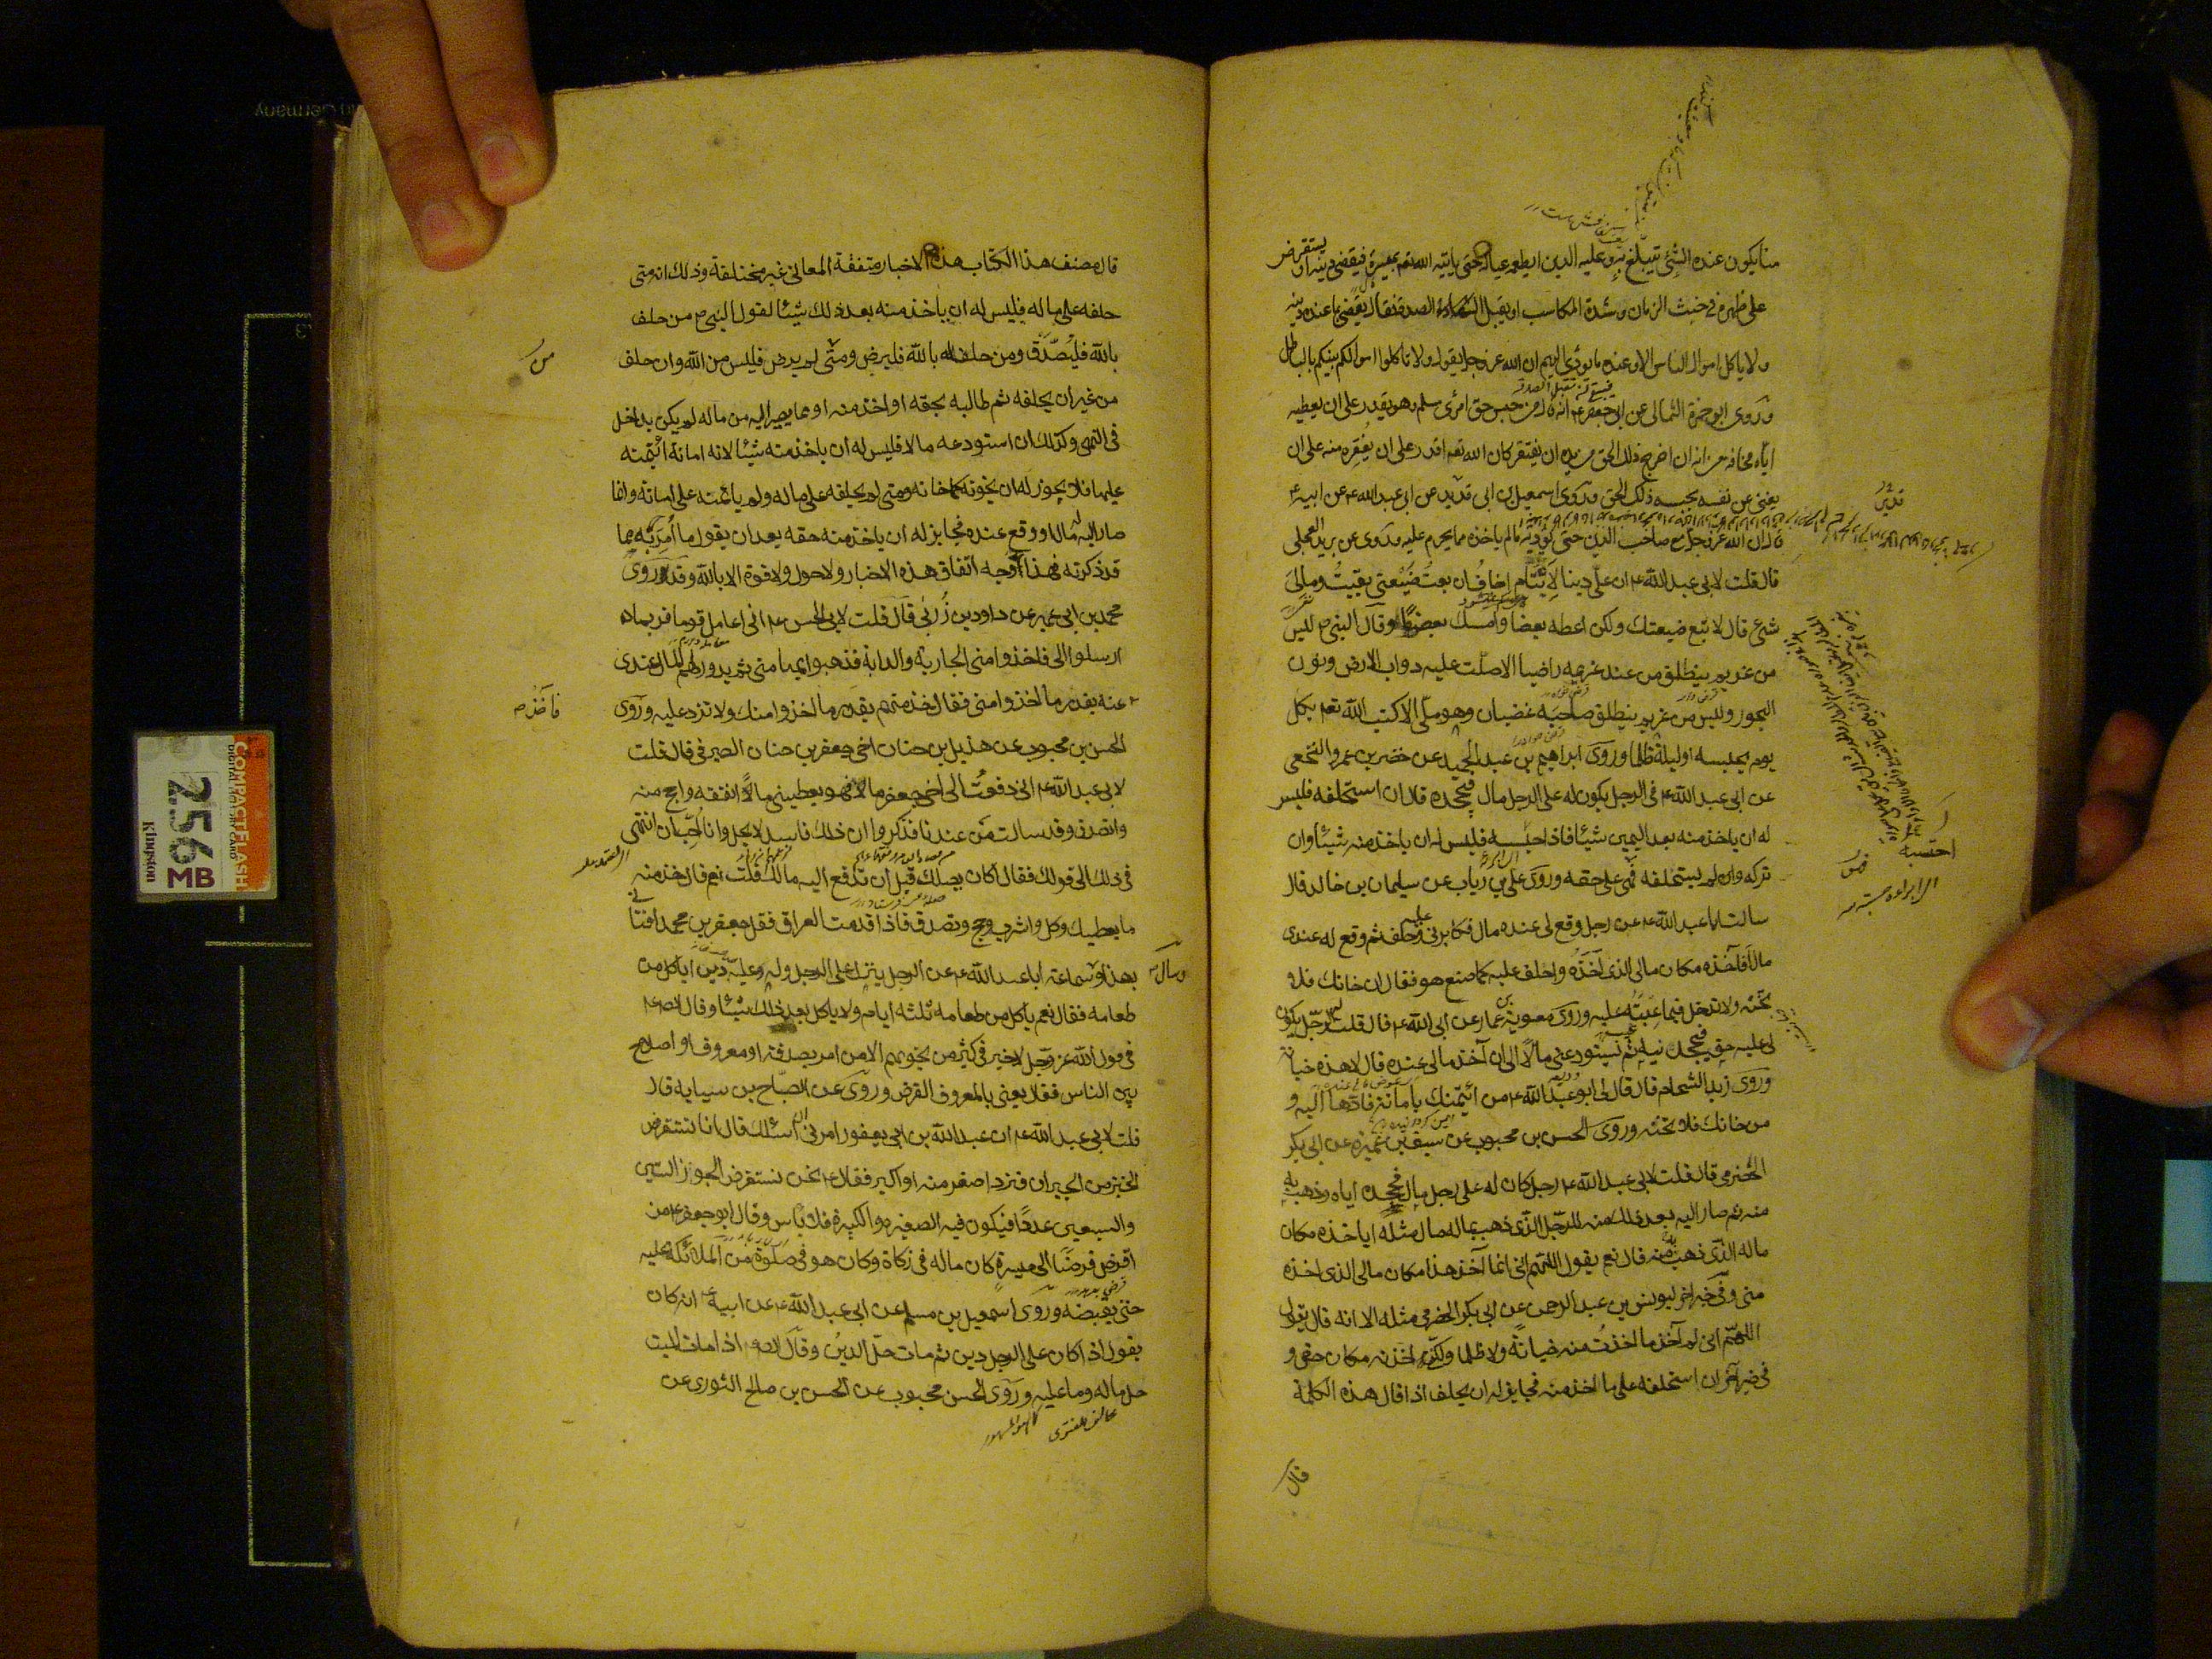 منا يكون عنده الشئ يتبلغ به وعليه الدين ايطعمه عياله حتى ياتيه الله تعه بميسرة فيقضى دينه او يستقرض
على ظهره فى خبث الزمان وشدة المكاسب او يقبل الصدقة فقال يقضى بما عنده دينه
ولا ياكل اموال الناس الا وعنده ما يؤدى اليهم ان الله عز وجل يقول ولا تاكلوا اموالكم بينكم بالباطل
وروى ابو حمزة الثمالى عن ابى جعفر ع انه قال من حبس حق امرئ مسلم وهو يقدر على ان يعطيه
اياه مخافة من انه ان اخرج ذلك الحق من يده ان يفتقر كان الله تعه اقدر على ان يفقره منه على ان
يغنى عن نفسه بحبسه ذلك الحق وروى اسمعيل بن ابى قديد عن ابى عبد الله ع عن ابيه ع
قال ان الله عز وجل مع صاحب الدين حتى يؤديه مالم ياخذه مما يحرم عليه وروى عن بريد العجلى
قال قلت لابى عبد الله ع ان على دينا لايتام اخاف ان بعت ضيعتى بقيت ومالى
شئ قال لا تبع ضيعتك ولكن اعطه بعضا وامسك بعضا وقال النبى ص ليس
من غريم ينطلق من عند غريمه راضيا الا صلت عليه دواب الارض ونون
البحور وليس من غريم ينطلق صاحبه غضبان وهو ملى الا كتب الله تعه بكل
يوم يحبسه او ليلة ظلما وروى ابراهيم بن عبد الحميد عن خضر بن عمرو النخعى
عن ابى عبد الله ع فى الرجل يكون له على الرجل مال فيجحده قال ان استحلفه فليس
له ان ياخذ منه بعد اليمين شيئا فاذا حبسه فليس له ان ياخذ منه شيئا وان
تركه ولم يستحلفه فهى على حقه وروى على بن رياب عن سليمان بن خالد قال
سالت ابا عبد الله ع عن رجل وقع لى عنده مال فكابرنى عليه وحلف ثم وقع له عندى
مال افاخذه مكان مالى الذى اخذه واحلف عليه كما صنع هو فقال ان خانك فلا
تخنه ولا تدخل فيما عبته عليه وروى معوية بن عمار عن ابى عبد الله ع قال قلت له الرجل يكون
لى عليه حق فيجحدنيه ثم يستودعنى مالا الى ان آخذ مالى عنده قال لا هذه خيانة
وروى زيد الشحام قال قال لى ابو عبد الله ع من ائتمنك بامانة فادها اليه و
من خانك فلا تخنه وروى الحسن بن محبوب عن سيف بن عميرة عن ابى بكر
الحضرمى قال قلت لابى عبد الله ع رجل كان له على رجل مال فجحده اياه وذهب به
منه ثم صار اليه بعد ذلك منه للرجل الذى ذهب بماله مال مثله اياخذه مكان
ماله الذى ذهب منه قال نعم يقول اللهم انى انما آخذ هذا مكان مالى الذى اخذه
منى وفى خبر آخر ليونس بن عبد الرحمن عن ابى بكر الحضرمى مثله الا انه قال يقول
اللهم انى لم آخذ ما اخذت منه خيانة ولا ظلما ولكنى اخذته مكان حقى و
فى خبر آخر ان استحلفه على ما اخذ منه فجايز له ان يحلف اذا قال هذه الكلمة
قال
قال مصنف هذا الكتاب هذه الاخبار متفقة المعانى غير مختلفة وذلك انه متى
حلفه على ماله فليس له ان ياخذ منه بعد ذلك شيئا لقول النبى ص من حلف
بالله فليصدق ومن حلف له بالله فليرض ومتى لم يرض فليس من الله وان حلف
من غير ان يحلفه ثم طالبه بحقه او اخذ منه او مما يصير اليه من ماله لم يكن بداخل
فى النهى وكذلك ان استودعه مالا فليس له ان ياخذ منه شيئا لانه امانة ائتمنه
عليها فلا يجوز له ان يخونه كما خانه ومتى لم يحلفه على ماله ولم ياتمنه على امانة وانما
صار اليه مال او وقع عنده فجايز له ان ياخذ منه حقه بعد ان يقول ما امر به مما
قد ذكرته فهذا وجه اتفاق هذه الاخبار ولا حول ولا قوة الا بالله وقد روى
محمد بن ابى عمير عن داود بن زربى قال قلت لابى الحسن ع انى اعامل قوما فربما
ارسلوا الى فاخذوا منى الجارية والدابة فذهبوا بها منى ثم يدور لهم المال عندى
فاخذ منه بقدر ما اخذوا منى فقال خذ منهم بقدر ما اخذوا منك ولا تزد عليه وروى
الحسن بن محبوب عن هذيل بن حنان اخى جعفر بن حنان الصيرفى قال قلت
لابى عبد الله ع انى دفعت الى اخى جعفر مالا فهو يعطينى مالا انفقه واحج منه
واتصدق وقد سالت من عندنا فذكروا ان ذلك فاسد لا يحل وانا احب ان انتهى
فى ذلك الى قولك فقال اكان يصلك قبل ان تدفع اليه مالك قلت نعم قال خذ منه
ما يعطيك وكل واشرب وحج وتصدق فاذا قدمت العراق فقل جعفر بن محمد افتانى
بهذا وسال سماعة ابا عبد الله ع عن الرجل ينزل على الرجل وله عليه دين اياكل من
طعامه فقال نعم ياكل من طعامه ثلثة ايام ولا ياكل بعد ذلك شيئا وقال الص ع
فى قول الله عز وجل لا خير فى كثير من نجويهم الا من امر بصدقة او معروف او اصلاح
بين الناس فقال يعنى بالمعروف القرض وروى عن الصباح بن سيابه قال
قلت لابى عبد الله ع ان عبد الله بن ابى يعفور امرنى ان اسئلك قال انا نستقرض
الخبز من الجيران فنرد اصغر منه او اكبر فقال ع نحن نستقرض الجوز الستين
والسبعين عددا فيكون فيه الصغيرة والكبيرة فلا باس وقال ابو جعفر ع من
اقرض قرضا الى ميسرة كان ماله فى زكاة وكان هو فى صلوة من الملائكة عليه
حتى يقبضه وروى اسمعيل بن مسلم عن ابى عبد الله ع عن ابيه ع انه كان
يقول اذا كان على الرجل دين ثم مات حل الدين وقال الص ع اذا مات الميت
حل ماله وما عليه وروى الحسن محبوب عن الحسن بن صالح الثورى عن
COMPACTFLASH
256 MB
Kingston